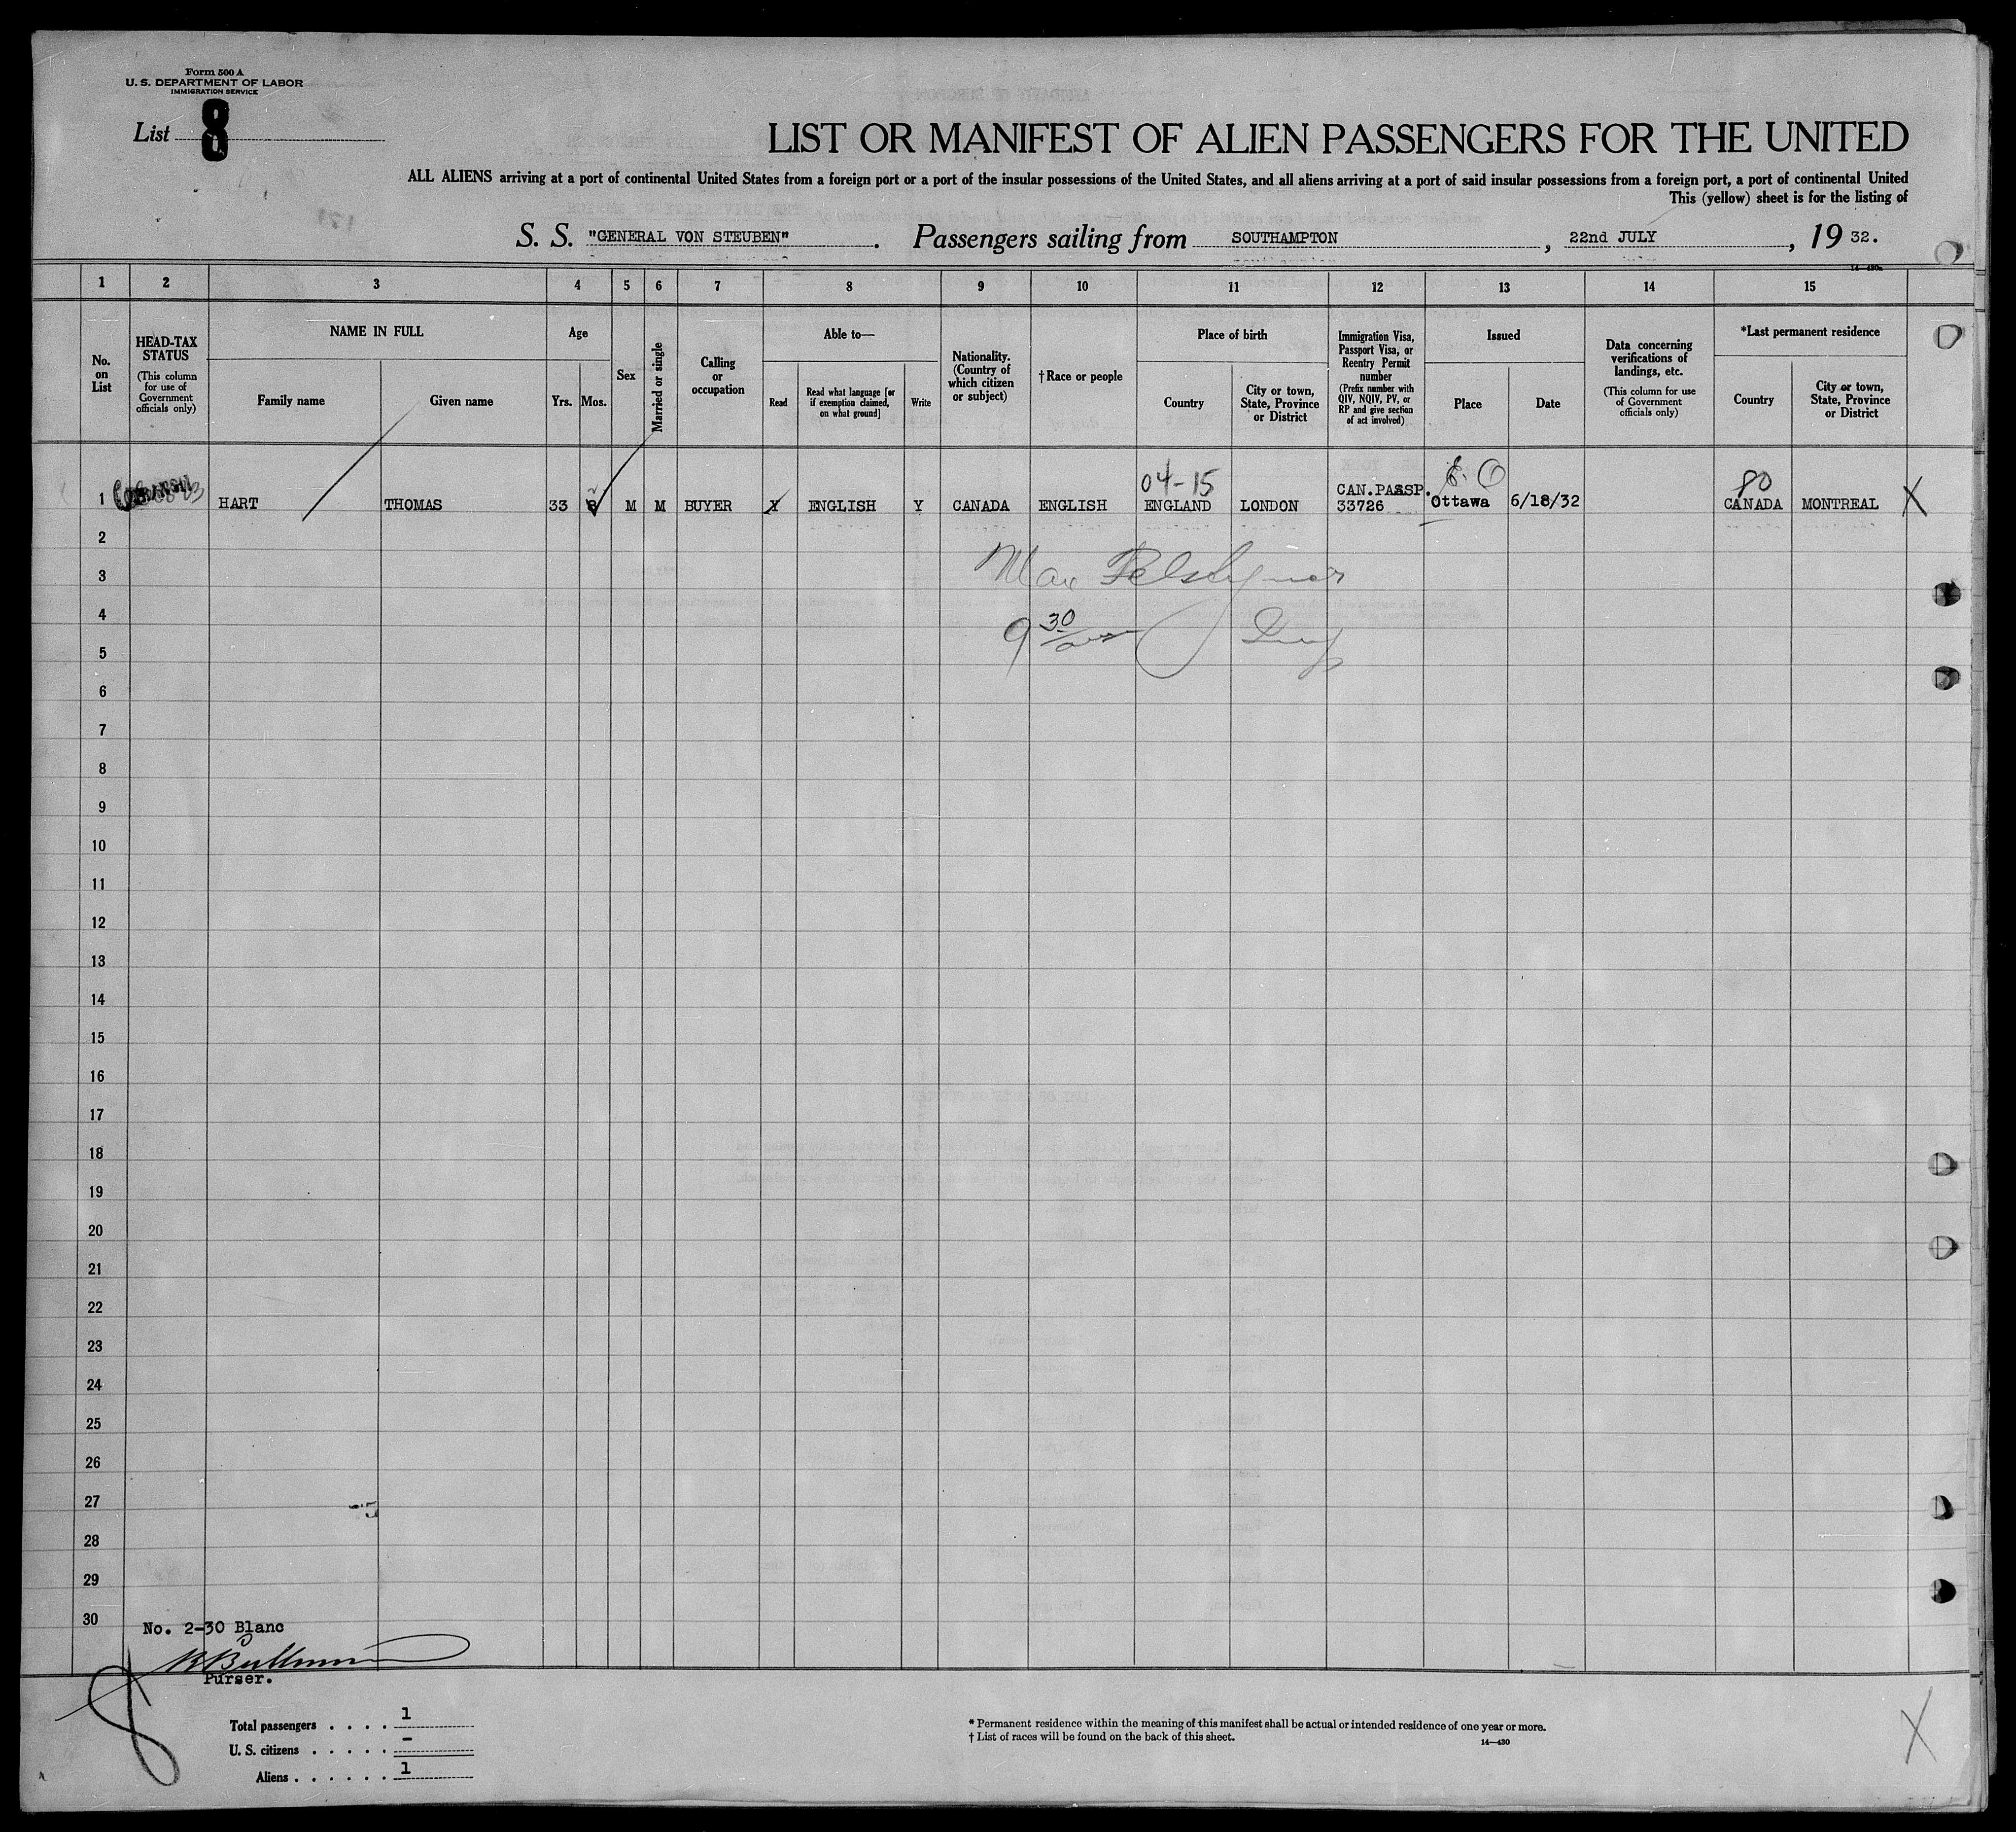 Form 500 A
U. S. DEPARTMENT OF LABOR
IMMIGRATION SERVICE
List 8
LIST OR MANIFEST OF ALIEN PASSENGERS FOR THE UNITED
ALL ALIENS arriving at a port of continental United States from a foreign port or a port of the insular possessions of the United States, and all aliens arriving at a port of said insular possessions from a foreign port, a port of continental United
This (yellow) sheet is for the listing of
S. S. "GENERAL VON STEUBEN" . Passengers sailing from SOUTHAMPTON , 22nd JULY , 19 32.
1 2 3 4 5 6 7 8 9 10 11 12 13 14 15
No. on List
HEAD-TAX STATUS (This column for use of Government officials only)
NAME IN FULL
Family name
Given name
Age
Yrs. Mos.
Sex
Married or single
Calling or occupation
Able to—
Read
Read what language [or if exemption claimed, on what ground]
Write
Nationality. (Country of which citizen or subject)
† Race or people
Place of birth
Country
City or town, State, Province or District
Immigration Visa, Passport Visa, or Reentry Permit number (Prefix number with QIV, NQIV, PV, or RP and give section of act involved)
Issued
Place
Date
Data concerning verifications of landings, etc. (This column for use of Government officials only)
*Last permanent residence
Country
City or town, State, Province or District
04-15
80
1 HART THOMAS 33 8 M M BUYER Y ENGLISH Y CANADA ENGLISH ENGLAND LONDON CAN.PASSP. 33726 Ottawa 6/18/32 CANADA MONTREAL X
2
3 Max
4 9 30
5
6
7
8
9
10
11
12
13
14
15
16
17
18
19
20
21
22
23
24
25
26
27
28
29
30
No. 2-30 Blanc
Purser.
8
Total passengers . . . . 1
U. S. citizens . . . . . -
Aliens . . . . . . 1
* Permanent residence within the meaning of this manifest shall be actual or intended residence of one year or more.
† List of races will be found on the back of this sheet.
14—430
X